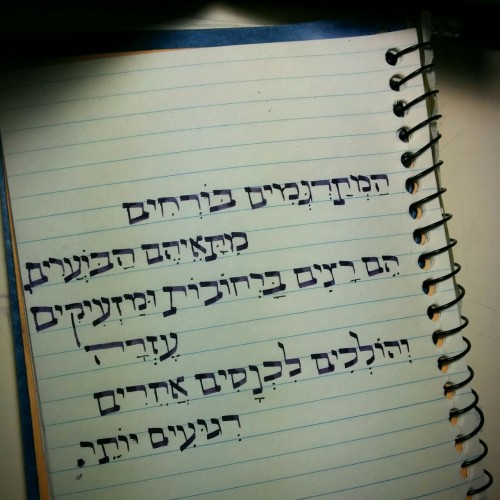 הַמְתַרְגְּמִים בּוֹרְחִים
מִתָּאֵיהֶם הַבּוֹעֲרִים
הֵם רָצִים בָּרְחוֹבוֹת וּמַזְעִיקִים
עֶזְרָה
וְהוֹלְכִים לִכְנָסִים אֲחֵרִים
רְגוּעִים יוֹתֵר.